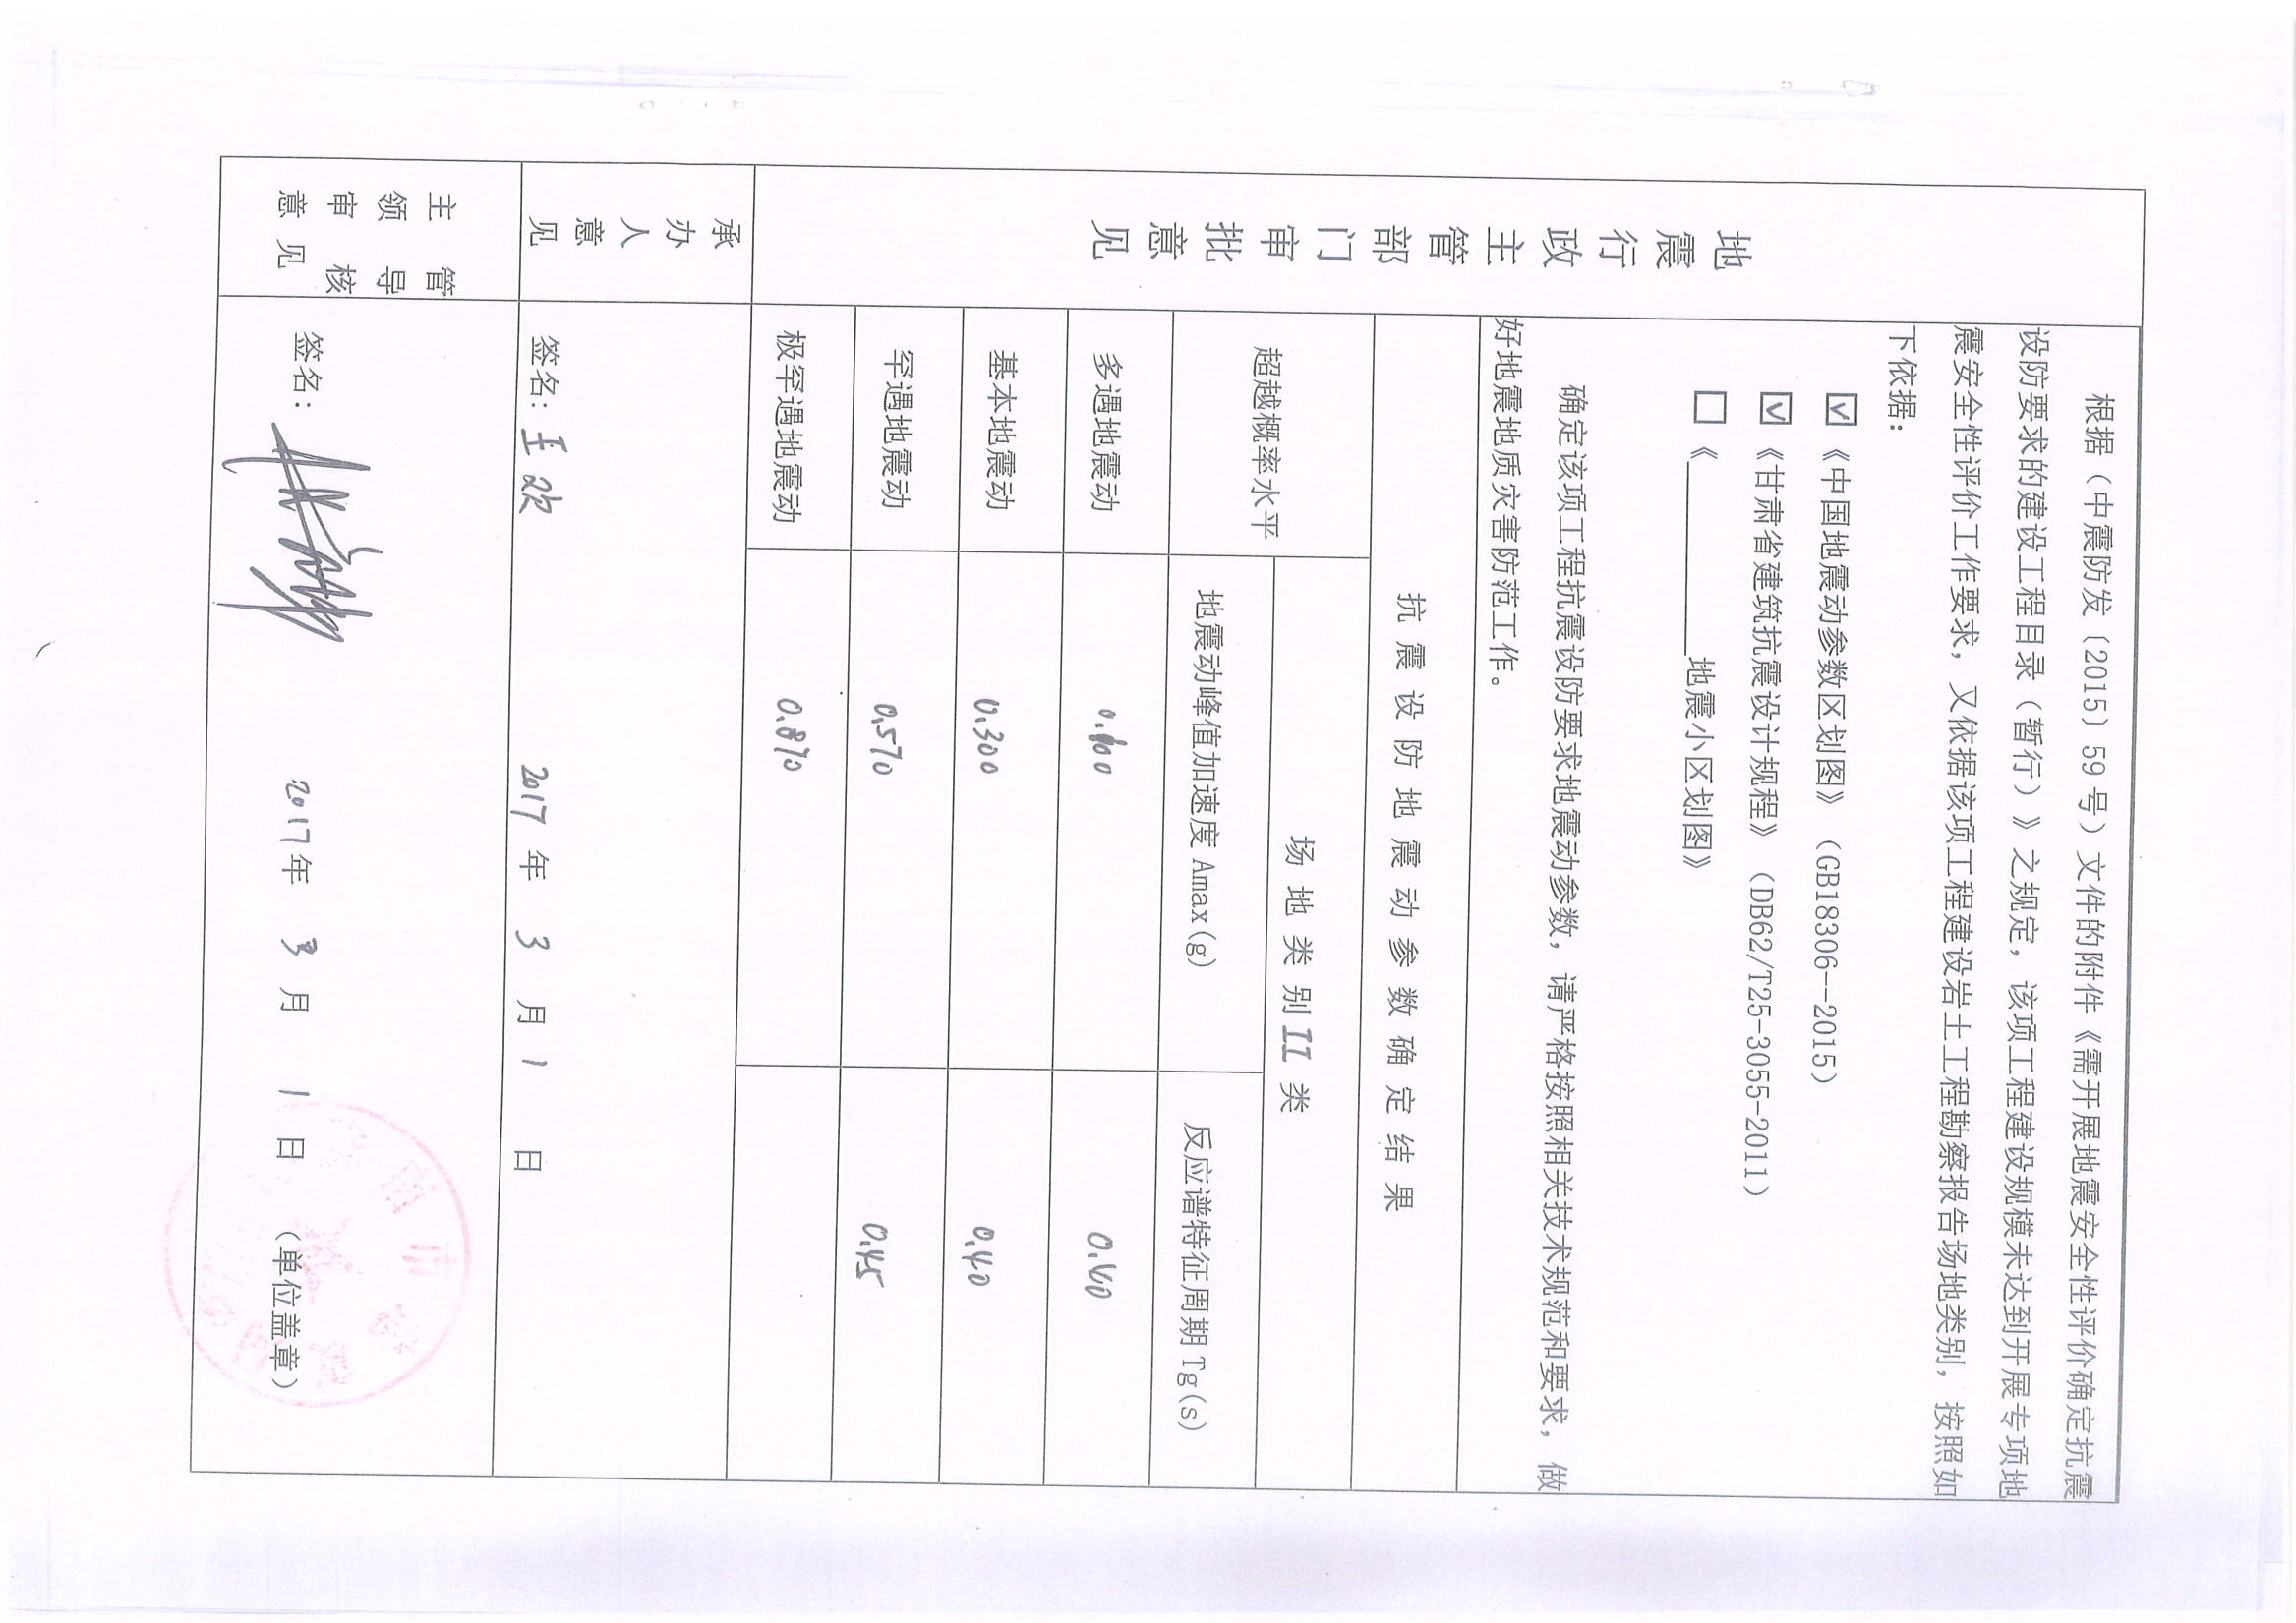 地震行政主管部门审批意见
根据（中震防发〔2015〕59号）文件的附件《需开展地震安全性评价确定抗震
设防要求的建设工程目录（暂行）》之规定，该项工程建设规模未达到开展专项地
震安全性评价工作要求，又依据该项工程建设岩土工程勘察报告场地类别，按照如
下依据：
☑《中国地震动参数区划图》（GB18306--2015）
☑《甘肃省建筑抗震设计规程》（DB62/T25-3055-2011）
☐《____________地震小区划图》
确定该项工程抗震设防要求地震动参数，请严格按照相关技术规范和要求，做
好地震地质灾害防范工作。
抗震设防地震动参数确定结果
超越概率水平
场地类别II类
地震动峰值加速度 Amax(g)
反应谱特征周期 Tg(s)
多遇地震动 0.100 0.40
基本地震动 0.300 0.40
罕遇地震动 0.570 0.45
极罕遇地震动 0.870
承办人意见
签名：王欢 2017年3月1日
主管
领导
审核
意见
签名： 2017年3月1日（单位盖章）
市